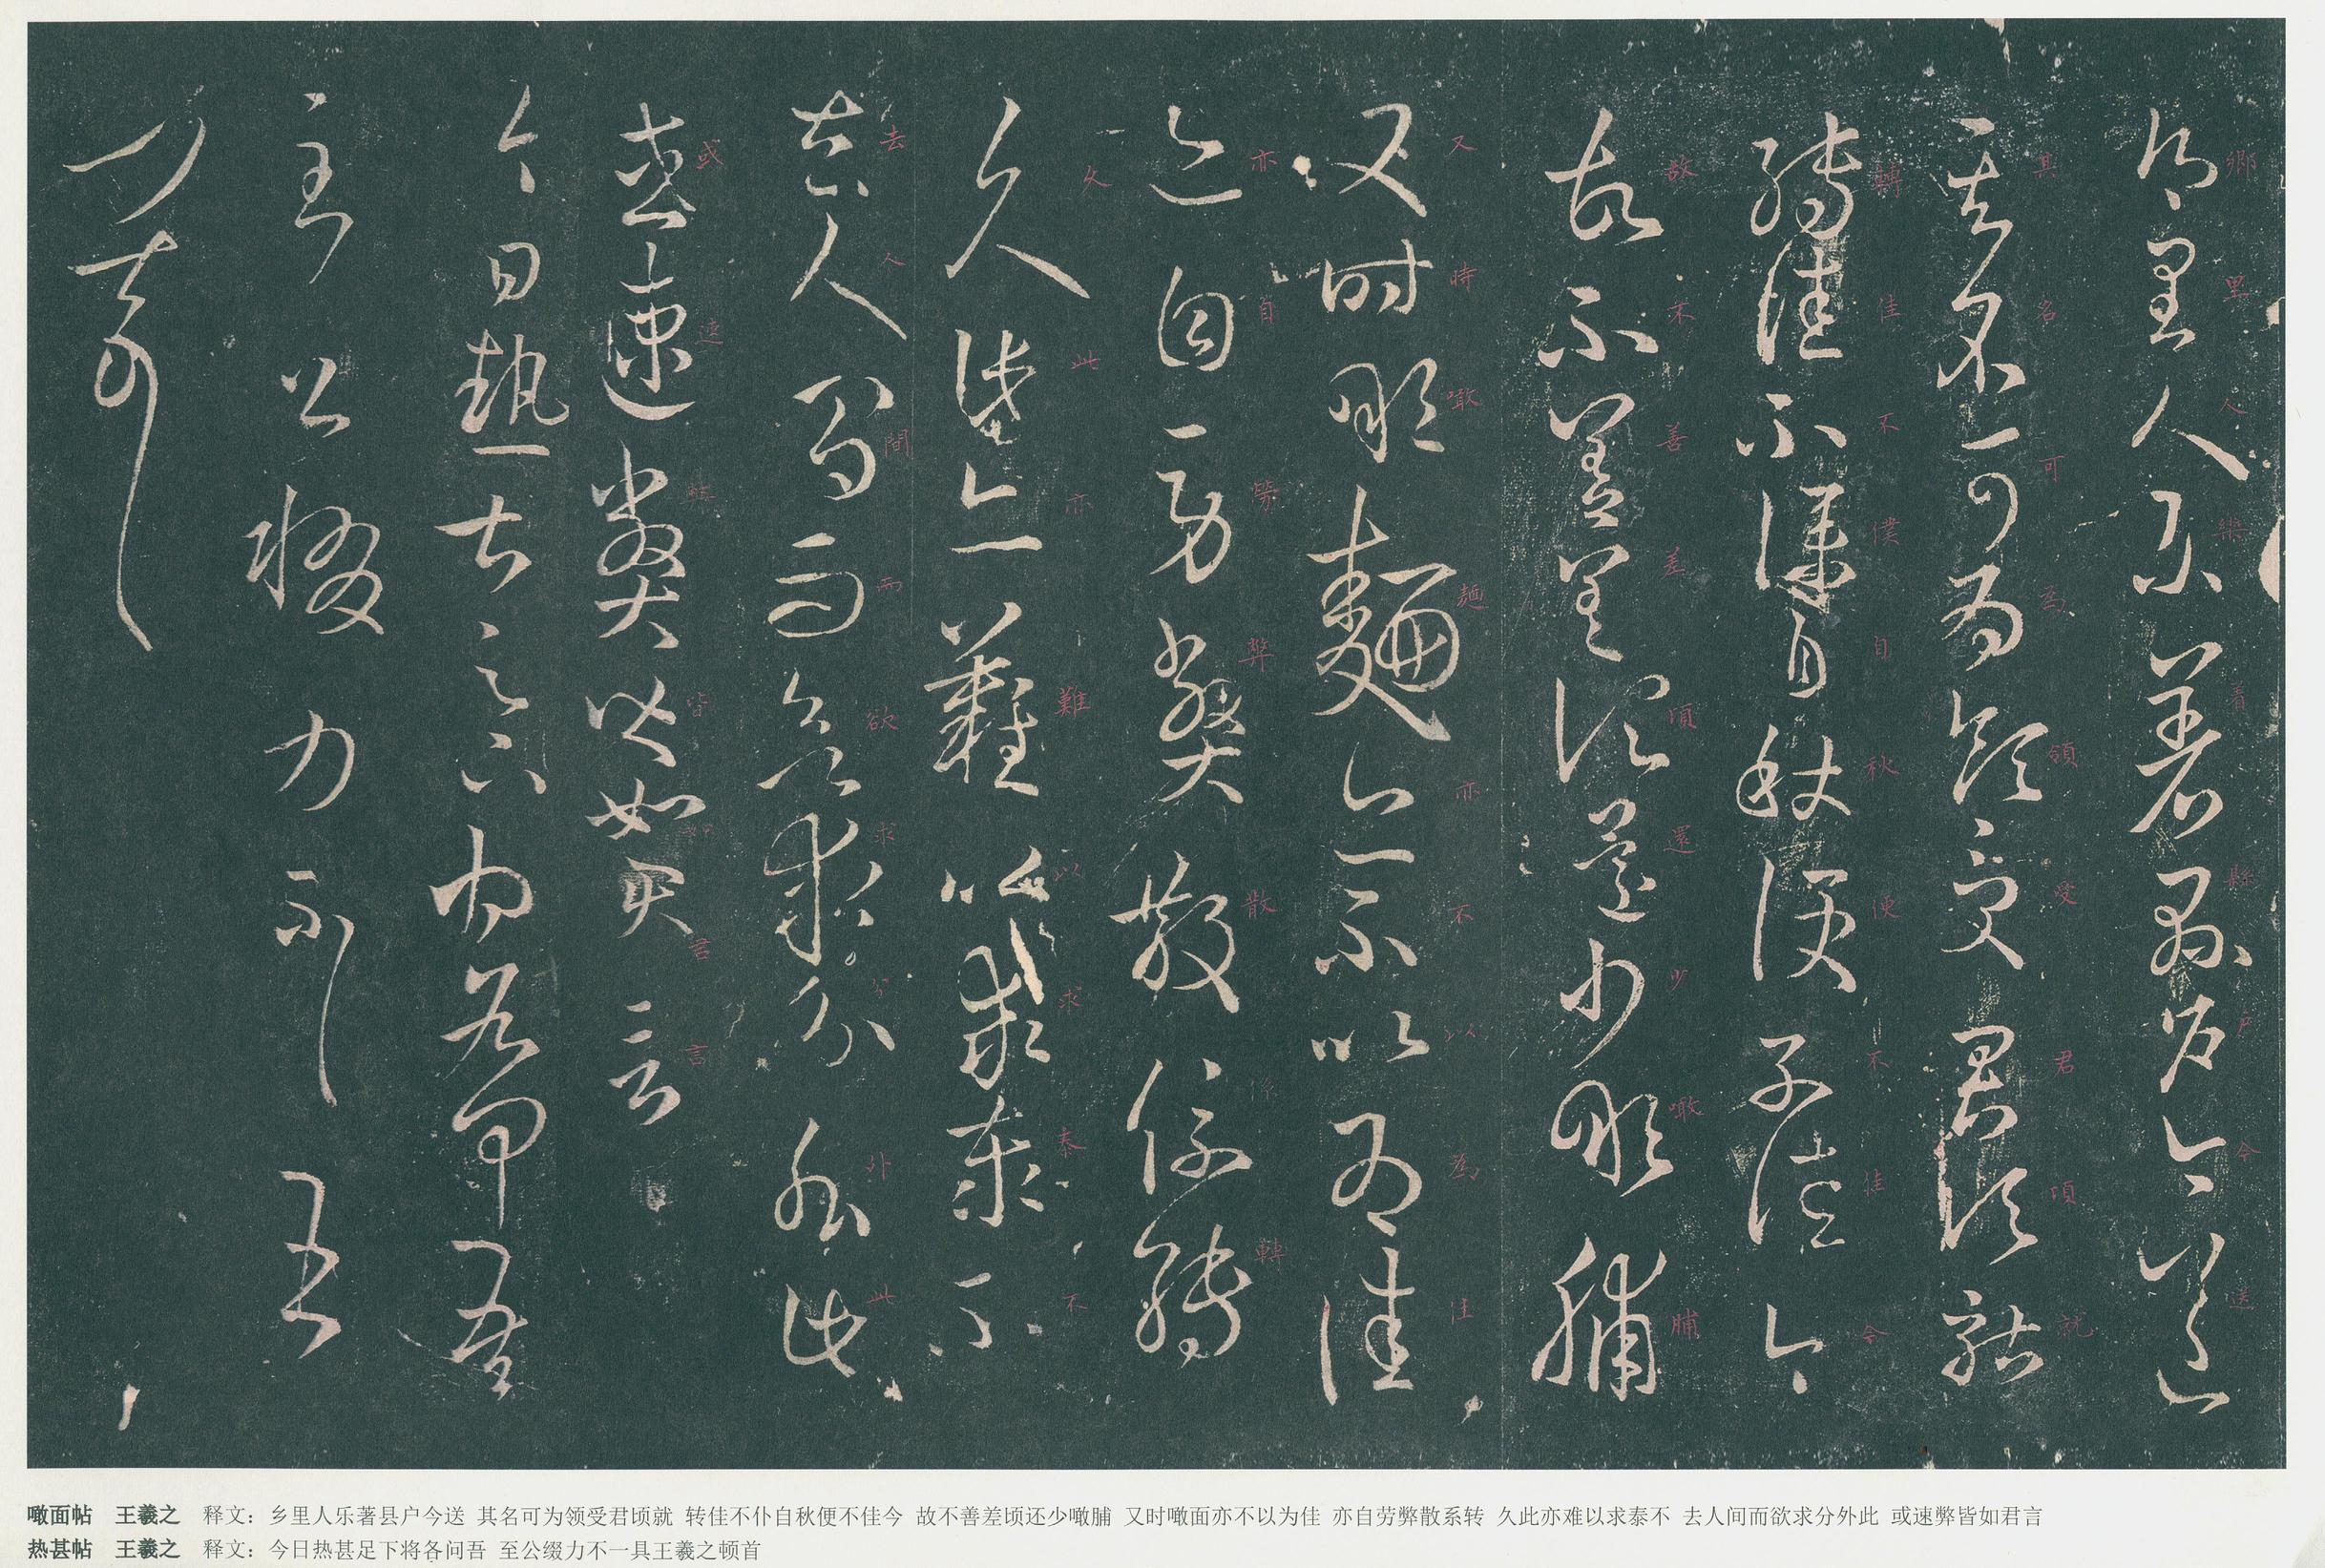 鄉里人樂著縣戶今送
其名可為領受君頃就
轉佳不僕自秋便不佳今
故不善差頃還少噉脯
又時噉麵亦不以為佳
亦自勞弊散係轉
久此亦難以求泰不
去人間而欲求分外此
或速弊皆如君言
今日熱甚足下將
力不
噉面帖 王羲之 释文：乡里人乐著县户今送 其名可为领受君顷就 转佳不仆自秋便不佳今 故不善差顷还少噉脯 又时噉面亦不以为佳 亦自劳弊散系转 久此亦难以求泰不 去人间而欲求分外此 或速弊皆如君言
热甚帖 王羲之 释文：今日热甚足下将各问吾 至公缀力不一具王羲之顿首